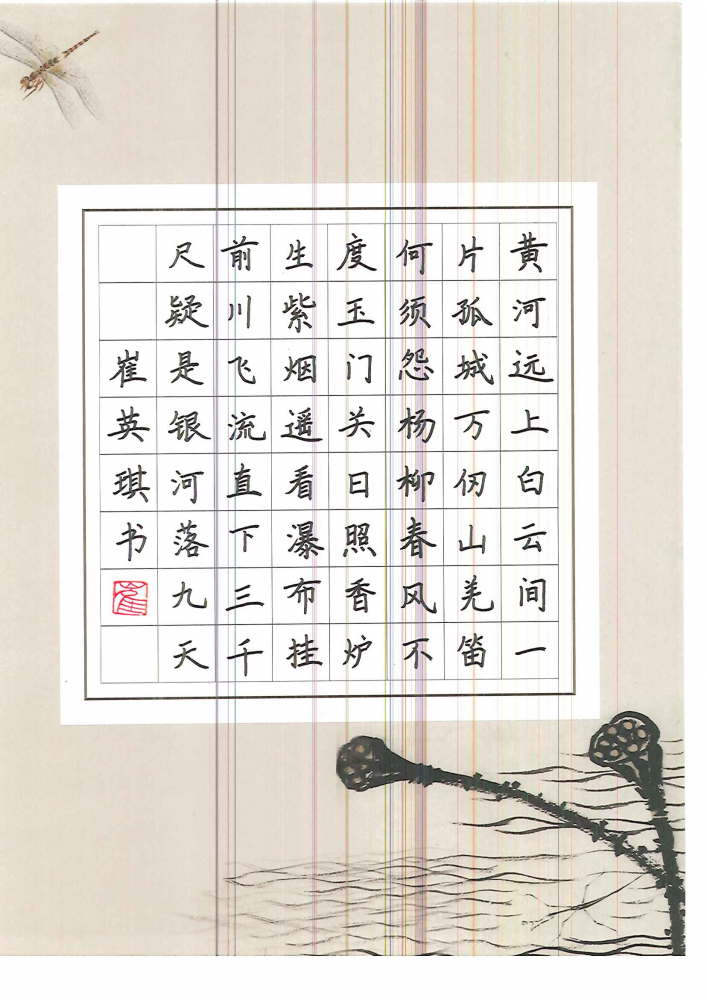 黄河远上白云间一
片孤城万仞山羌笛
何须怨杨柳春风不
度玉门关日照香炉
生紫烟遥看瀑布挂
前川飞流直下三千
尺疑是银河落九天
崔英琪书
崔